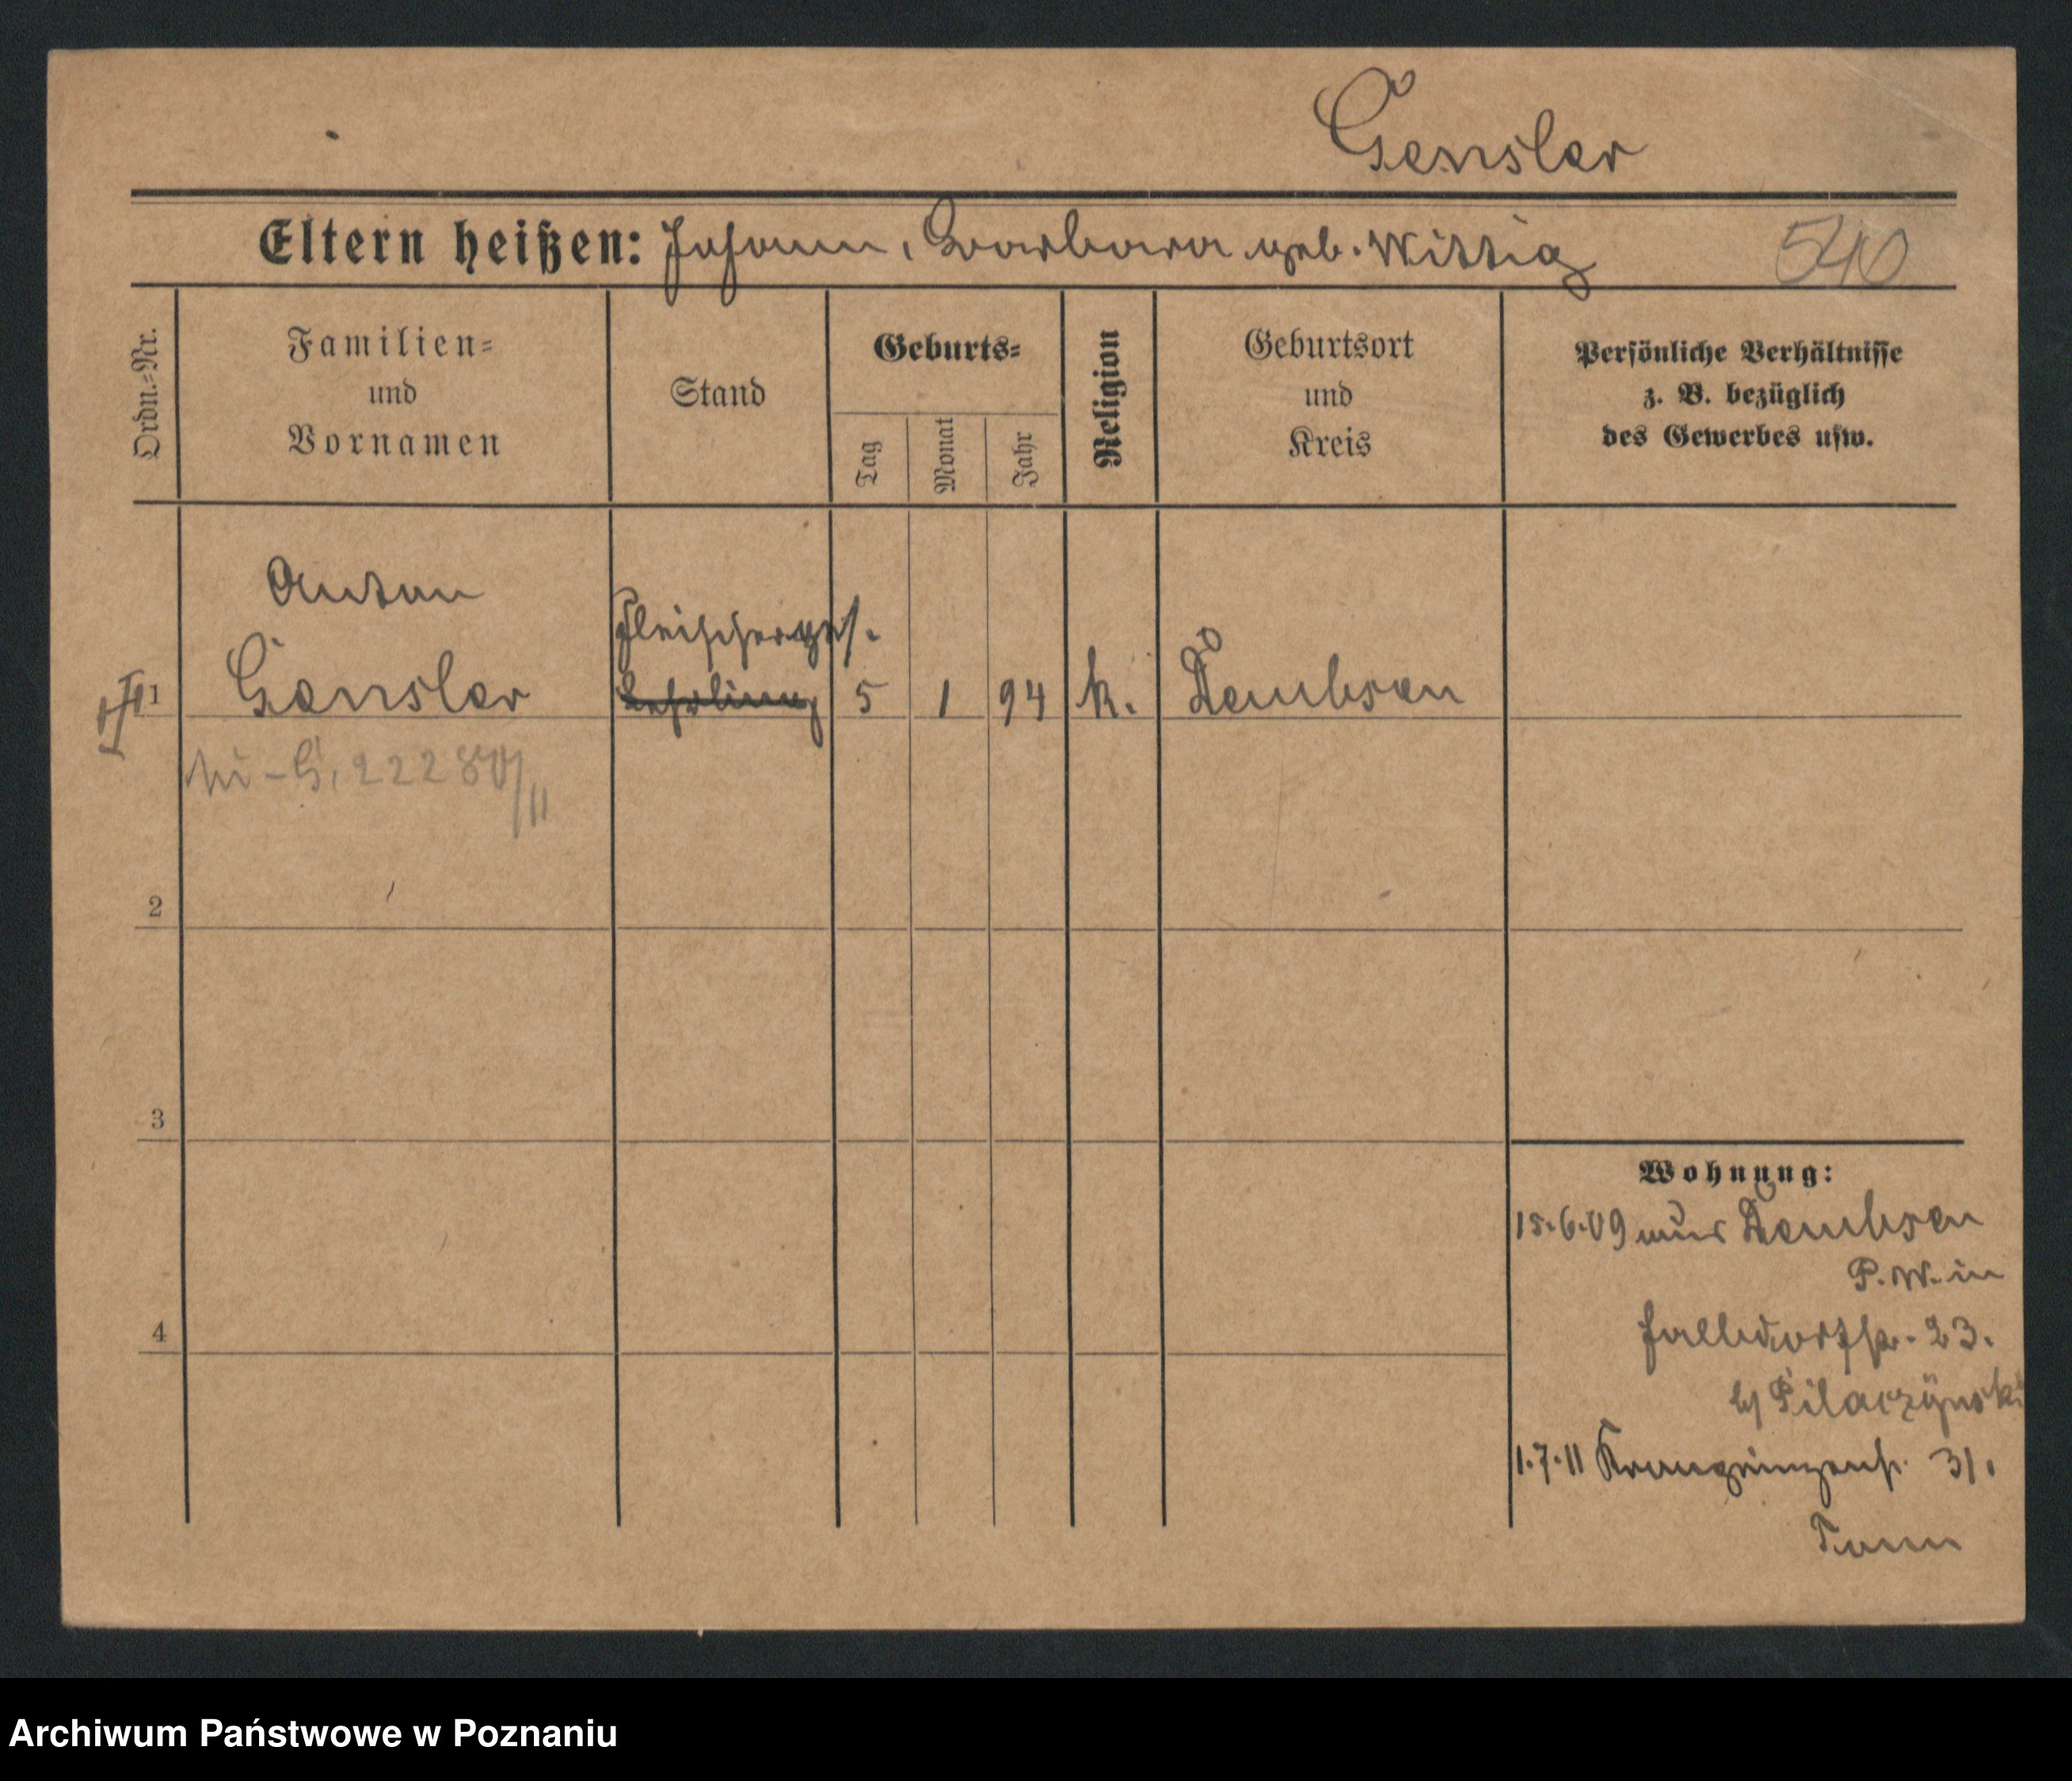 Gensler
Eltern heißen: Johann, Barbara geb. Wittig 540
Ordn.=Nr.
Familien=
und
Vornamen
Stand
Geburts=
Tag
Monat
Jahr
Religion
Geburtsort
und
Kreis
Persönliche Verhältnisse
z. B. bezüglich
des Gewerbes usw.
Anton
Fleischerges.
1 Gensler Lehrling 5 1 94 k. Dembsen
G. 222
2
3
4
Wohnung:
15.6.09 aus Dembsen
P. W. in
23.
b/ Pilaczÿnski
1.7.11 Kronprinzenstr. 31.
Archiwum Państwowe w Poznaniu